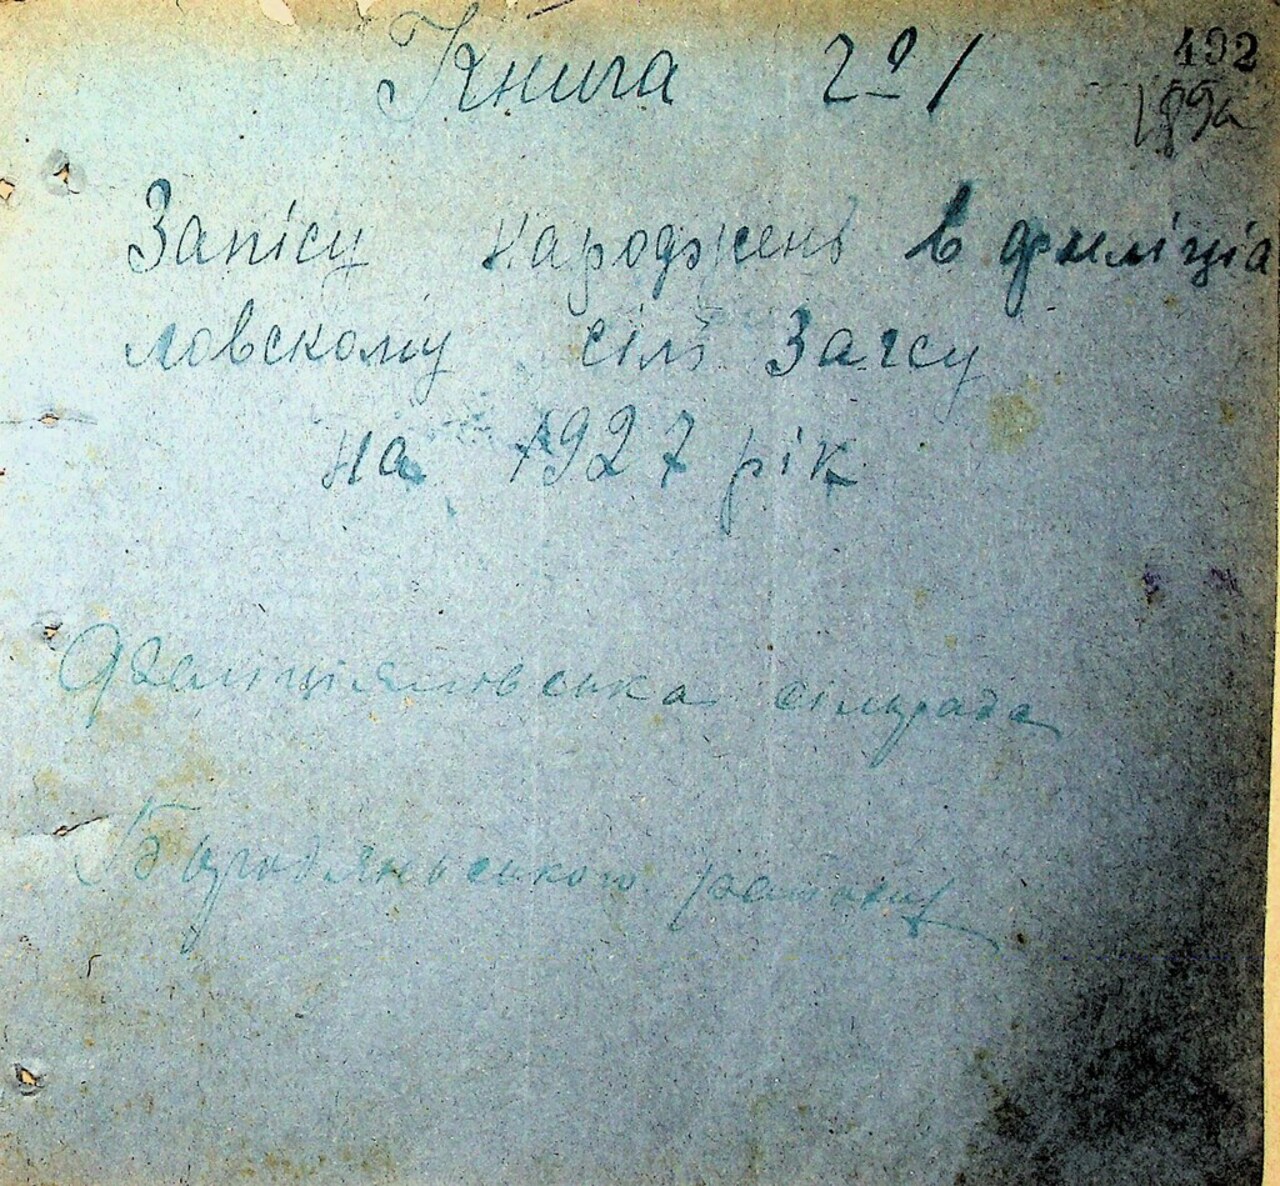 Книга № 1
492
189а
Запісу народжень в филіціа
ловскому сілі Загсу
на 1927 рік
Феліціяновська сільрада
Бородянського району